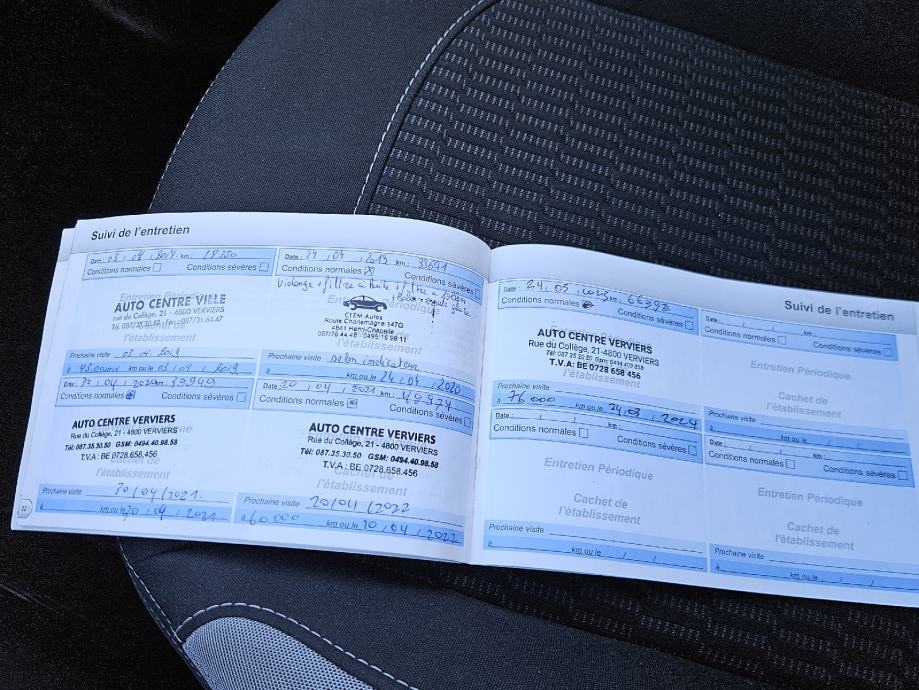 Suivi de l'entretien
Date: 03, 04, 2018 km: 18350
Conditions normales Conditions sévères
AUTO CENTRE VILLE
Rue du Collège, 21 - 4800 VERVIERS
l'établissement
Prochaine visite 03.04.2019
à km ou le 03/04/2019
Date: 04, 2020 km: 39949
Conditions normales Conditions sévères
AUTO CENTRE VERVIERS
Rue du Collège, 21 - 4800 VERVIERS
Tél: 087.35.30.50 GSM: 0494.40.98.58
T.V.A : BE 0728.658.456
Cachet de
l'établissement
Prochaine visite 30/04/2021.
à km ou le 04, 2021
22
Date: 24, 04, 2019 km: 33691
Conditions normales Conditions sévères
Vidange + filtre à huile + filtre à
CLEM Autos
Route Charlemagne 147G
4841 Henri-Chapelle
l'établissement
Prochaine visite selon indicateur
à km ou le 24, 04, 2020
Date: 20, 04, 2021 km: 49974
Conditions normales Conditions sévères
AUTO CENTRE VERVIERS
Rue du Collège, 21 - 4800 VERVIERS
Tél: 087.35.30.50 GSM: 0494.40.98.58
T.V.A : BE 0728.658.456
l'établissement
Prochaine visite 20/04/2022
à 60 000 km ou le 20, 04, 2022
Suivi de l'entretien
Date: 24, 05, 2023 km:
Conditions normales Conditions sévères
AUTO CENTRE VERVIERS
Rue du Collège, 21-4800 VERVIERS
T.V.A: BE 0728 658 456
l'établissement
Prochaine visite
à 76 000 km ou le 2024
Date: , , km:
Conditions normales Conditions sévères
Entretien Périodique
Cachet de
l'établissement
Prochaine visite
à km ou le / /
Date: , , km:
Conditions normales Conditions sévères
Entretien Périodique
Cachet de
l'établissement
Prochaine visite
à km ou le / /
Date: , , km:
Conditions normales Conditions sévères
Entretien Périodique
Cachet de
l'établissement
Prochaine visite
à km ou le / /